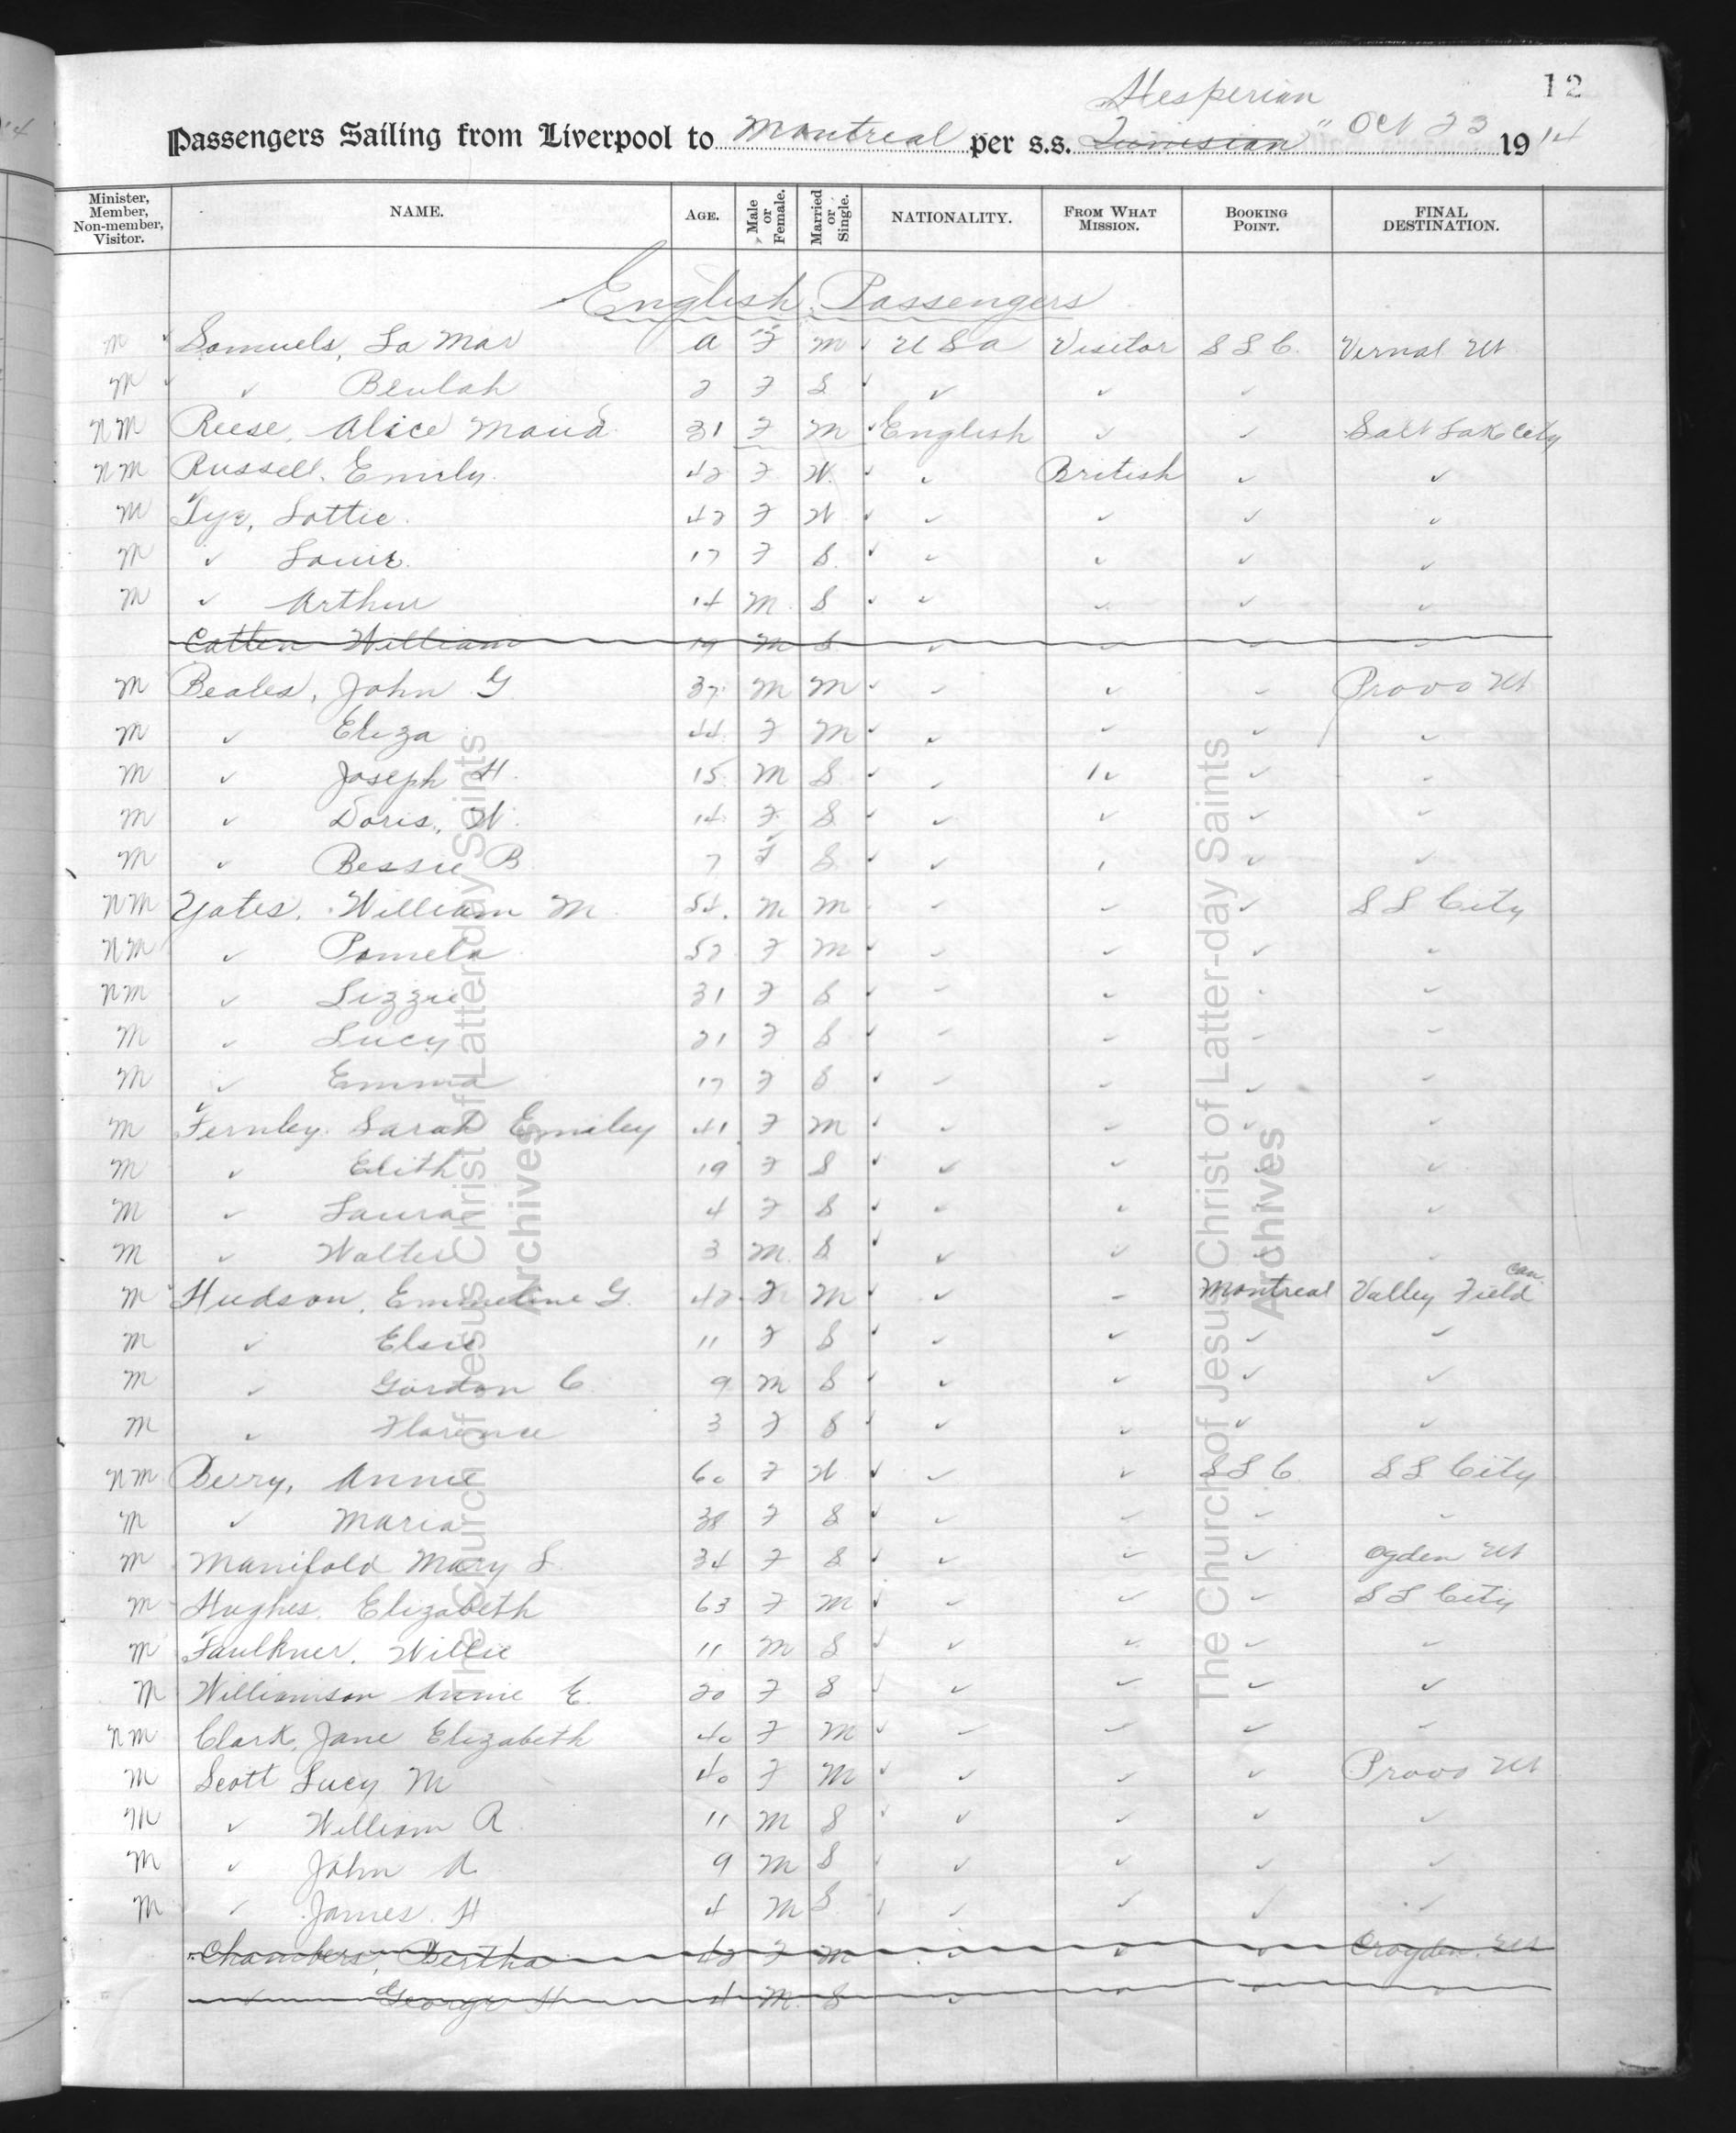 12
Hesperian
Passengers Sailing from Liverpool to Montreal per s.s. Tunisian" Oct 23 1914
Minister, Member, Non-member, Visitor. NAME. AGE. Male or Female. Married or Single. NATIONALITY. FROM WHAT MISSION. BOOKING POINT. FINAL DESTINATION.
English Passengers
M Samuels, La Mar a F M ✓ USA Visitor S L C. Vernal Ut
M ✓ ✓ Beulah 2 F S ✓ ✓ ✓ ✓
NM Reese, Alice Maud 31 F M ✓ English ✓ ✓ Salt Lake City
NM Russell, Emily. 42 F W. ✓ ✓ British ✓ ✓
M Tye, Lottie. 42 F W ✓ ✓ ✓ ✓ ✓
M ✓ Louie. 17 F S. ✓ ✓ ✓ ✓ ✓
M ✓ Arthur 14 M. S ✓ ✓ ✓ ✓ ✓
Catten William 19 M S. ✓ ✓ ✓ ✓
M Beales, John G 37 M M ✓ ✓ ✓ ✓ Provo Ut
M ✓ Eliza 44 F M ✓ ✓ ✓ ✓ ✓
M ✓ Joseph H. 15 M S ✓ ✓ ✓ ✓ ✓
M ✓ Doris, W. 14 F S ✓ ✓ ✓ ✓ ✓
M ✓ Bessie B 7 F S ✓ ✓ ✓ ✓ ✓
NM Yates, William M 54. M M ✓ ✓ ✓ S L City
NM ✓ Pamela 52 F M ✓ ✓ ✓ ✓ ✓
NM ✓ Lizzie 31 F S ✓ ✓ ✓ ✓ ✓
M ✓ Lucy 21 F S ✓ ✓ ✓ ✓ ✓
M ✓ Emma 17 F S ✓ ✓ ✓ ✓ ✓
M Fernley. Sarah Emiley 41 F M ✓ ✓ ✓ ✓ ✓
M ✓ Edith 19 F S ✓ ✓ ✓ ✓ ✓
M ✓ Laura 4 F S ✓ ✓ ✓ ✓ ✓
M ✓ Walter 3 M. S ✓ ✓ ✓ ✓ ✓
M Hudson, Emmeline G. 42 F M ✓ ✓ ✓ Montreal Valley Field Can.
M ✓ Elsie 11 F S ✓ ✓ ✓ ✓ ✓
M ✓ Gordon C 9 M S ✓ ✓ ✓ ✓ ✓
M ✓ Florence 3 F S ✓ ✓ ✓ ✓ ✓
NM Berry, Annie 60 F W ✓ ✓ ✓ S L C S L City
M ✓ Maria 38 F S ✓ ✓ ✓ ✓ ✓
M Manifold Mary L 34 F S ✓ ✓ ✓ ✓ Ogden Ut
M Hughes. Elizabeth 63 F M ✓ ✓ ✓ ✓ S L City
M Faulkner. Willie 11 M S ✓ ✓ ✓ ✓ ✓
M Williamson Annie E. 20 F S ✓ ✓ ✓ ✓ ✓
NM Clark, Jane Elizabeth 40 F M ✓ ✓ ✓ ✓ ✓
M Scott Lucy M 40 F M ✓ ✓ ✓ ✓ Provo Ut
M ✓ William A 11 M S ✓ ✓ ✓ ✓ ✓
M ✓ John A 9 M S ✓ ✓ ✓ ✓ ✓
M ✓ James. H 4 M S ✓ ✓ ✓ ✓ ✓
Chambers, Bertha 42 F M ✓ ✓ ✓ Croyden, Ut
✓ George H 4 M. S ✓ ✓ ✓ ✓
The Church of Jesus Christ of Latter-day Saints
Archives
The Church of Jesus Christ of Latter-day Saints
Archives